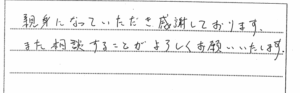 親身になっていただき感謝しております.
また相談することがよろしくお願いいたします.